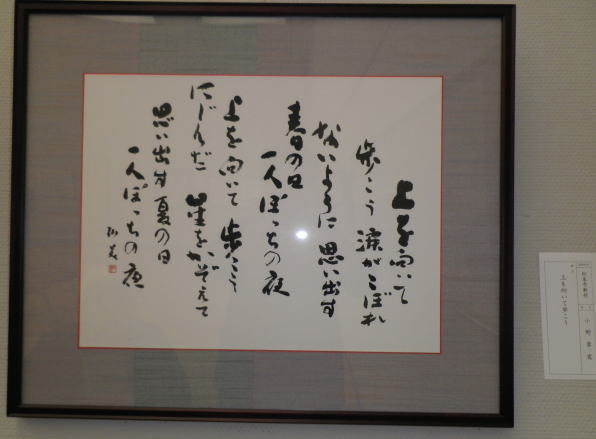 上を向いて
歩こう 涙がこぼれ
ないように 思い出す
春の日
一人ぼっちの夜
上を向いて 歩こう
にじんだ 星をかぞえて
思い出す 夏の日
一人ぼっちの夜
上を向いて歩こう